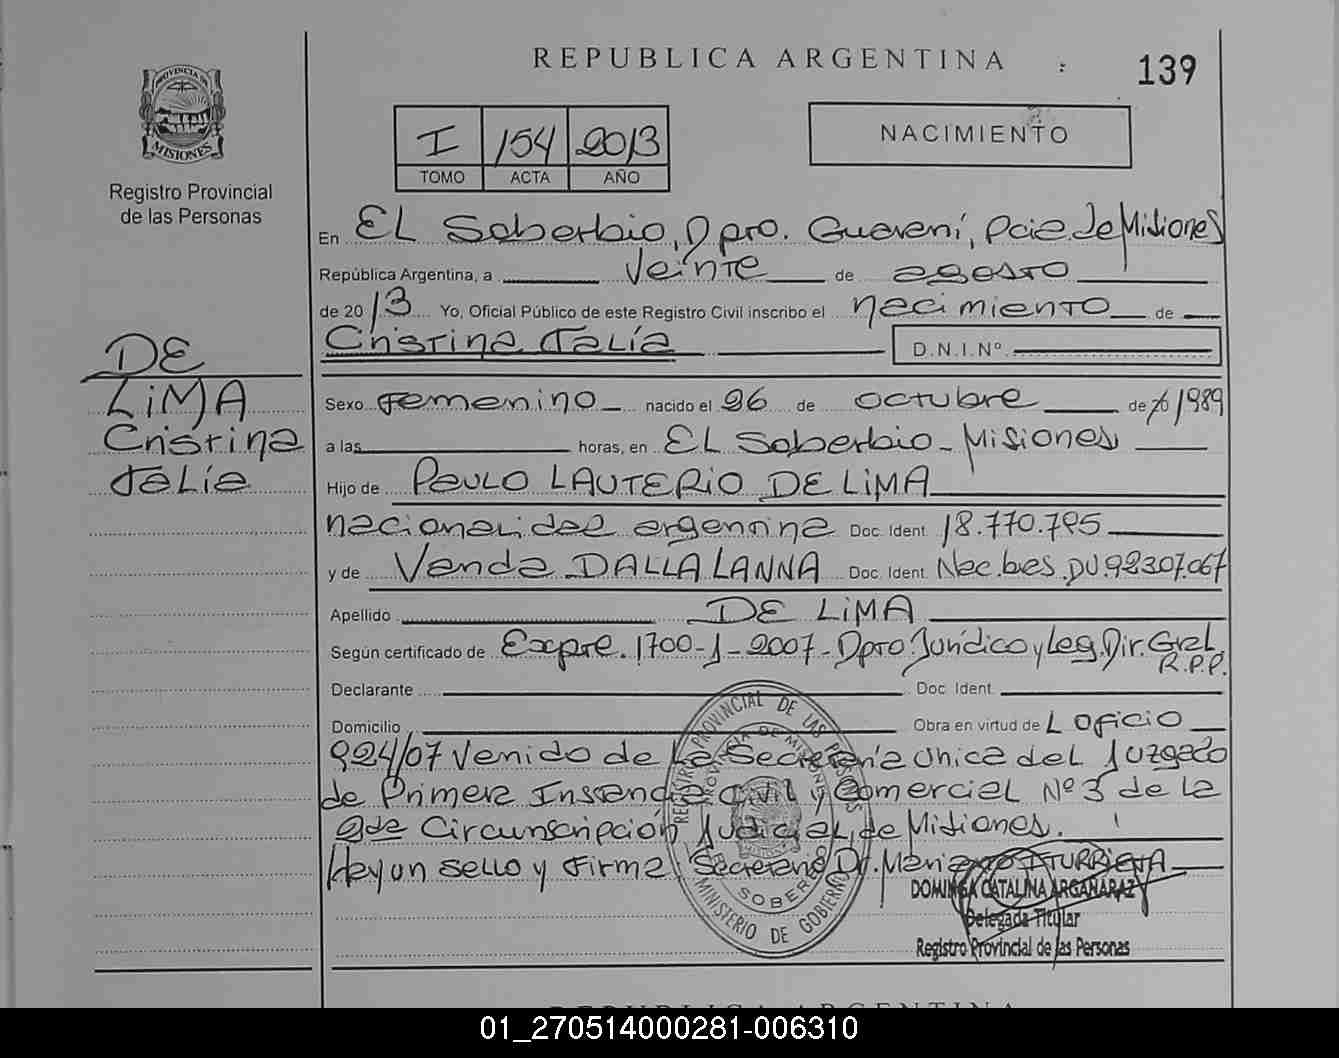 REPUBLICA ARGENTINA
139
PROVINCIA DE
MISIONES
Registro Provincial
de las Personas
I 154 2013
TOMO ACTA AÑO
NACIMIENTO
En EL Soberbio, Dpto. Guaraní, Pcia. de Misiones
República Argentina, a Veinte de agosto
de 2013 Yo, Oficial Público de este Registro Civil inscribo el nacimiento de
Cristina Talía D.N.I.Nº
DE
LiMA
Cristina
Talía
Sexo Femenino nacido el 26 de octubre de 20 1989
a las horas, en EL Soberbio - Misiones
Hijo de PAULO LAUTERIO DE LiMA
nacionalidad argentina Doc. Ident. 18.770.725
y de Vanda DALLA LANNA Doc. Ident. Nac. bras. DU. 92307.067
Apellido DE LiMA
Según certificado de Expte. 1700-J-2007- Dpto. Jurídico y Leg. Dir. Gral.
R.P.P.
Declarante Doc. Ident.
Domicilio Obra en virtud de L oficio
924/07 Venido de La Secretaría Unica del Juzgado
de Primera Instancia Civil y Comercial Nº 3 de La
2da Circunscripción Judicial, de Misiones.
Hay un sello y Firma, Secretario Dr. Mariano ITURRIETA
REGISTRO PROVINCIAL DE LAS PERSONAS
PROVINCIA DE MISIONES
EL SOBERBIO
MINISTERIO DE GOBIERNO
DOMINGA CATALINA ARGAÑARAZ
Delegada Titular
Registro Provincial de las Personas
REPUBLICA ARGENTINA
01_270514000281-006310